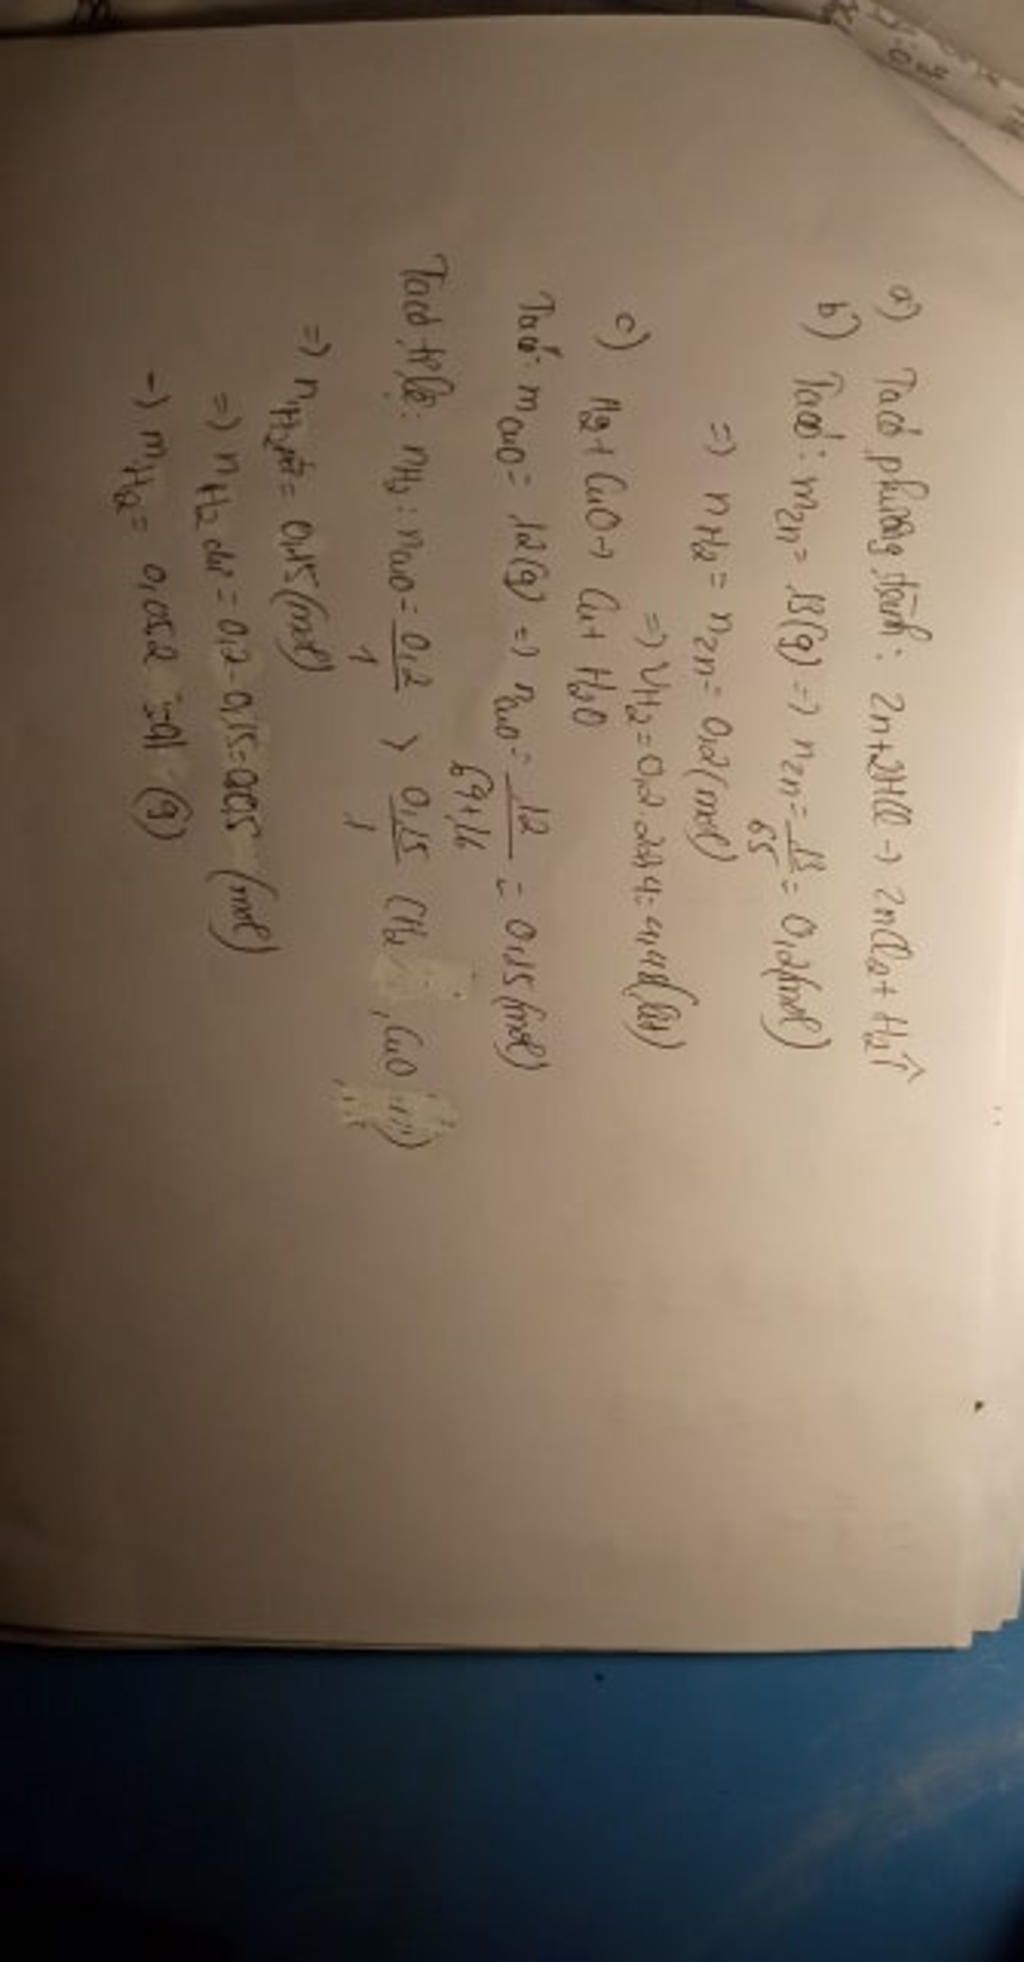 a) Ta có phương trình: Zn+2HCl → ZnCl2+ H2↑
b) Ta có: mZn= 13(g) => nZn= 13/65 = 0,2(mol)
=> nH2 = nZn= 0,2(mol)
=> VH2= 0,2.22,4= 4,48(lít)
c) H2+ CuO→ Cu+ H2O
Ta có: mCuO= 12(g) => nCuO= 12/64+16 = 0,15(mol)
Ta có tỉ lệ: nH2: nCuO= 0,2/1 > 0,15/1 (H2, CuO)
=> nH2pứ= 0,15(mol)
=> nH2 dư = 0,2-0,15= (mol)
→ mH2= 0,05.2 = (g)